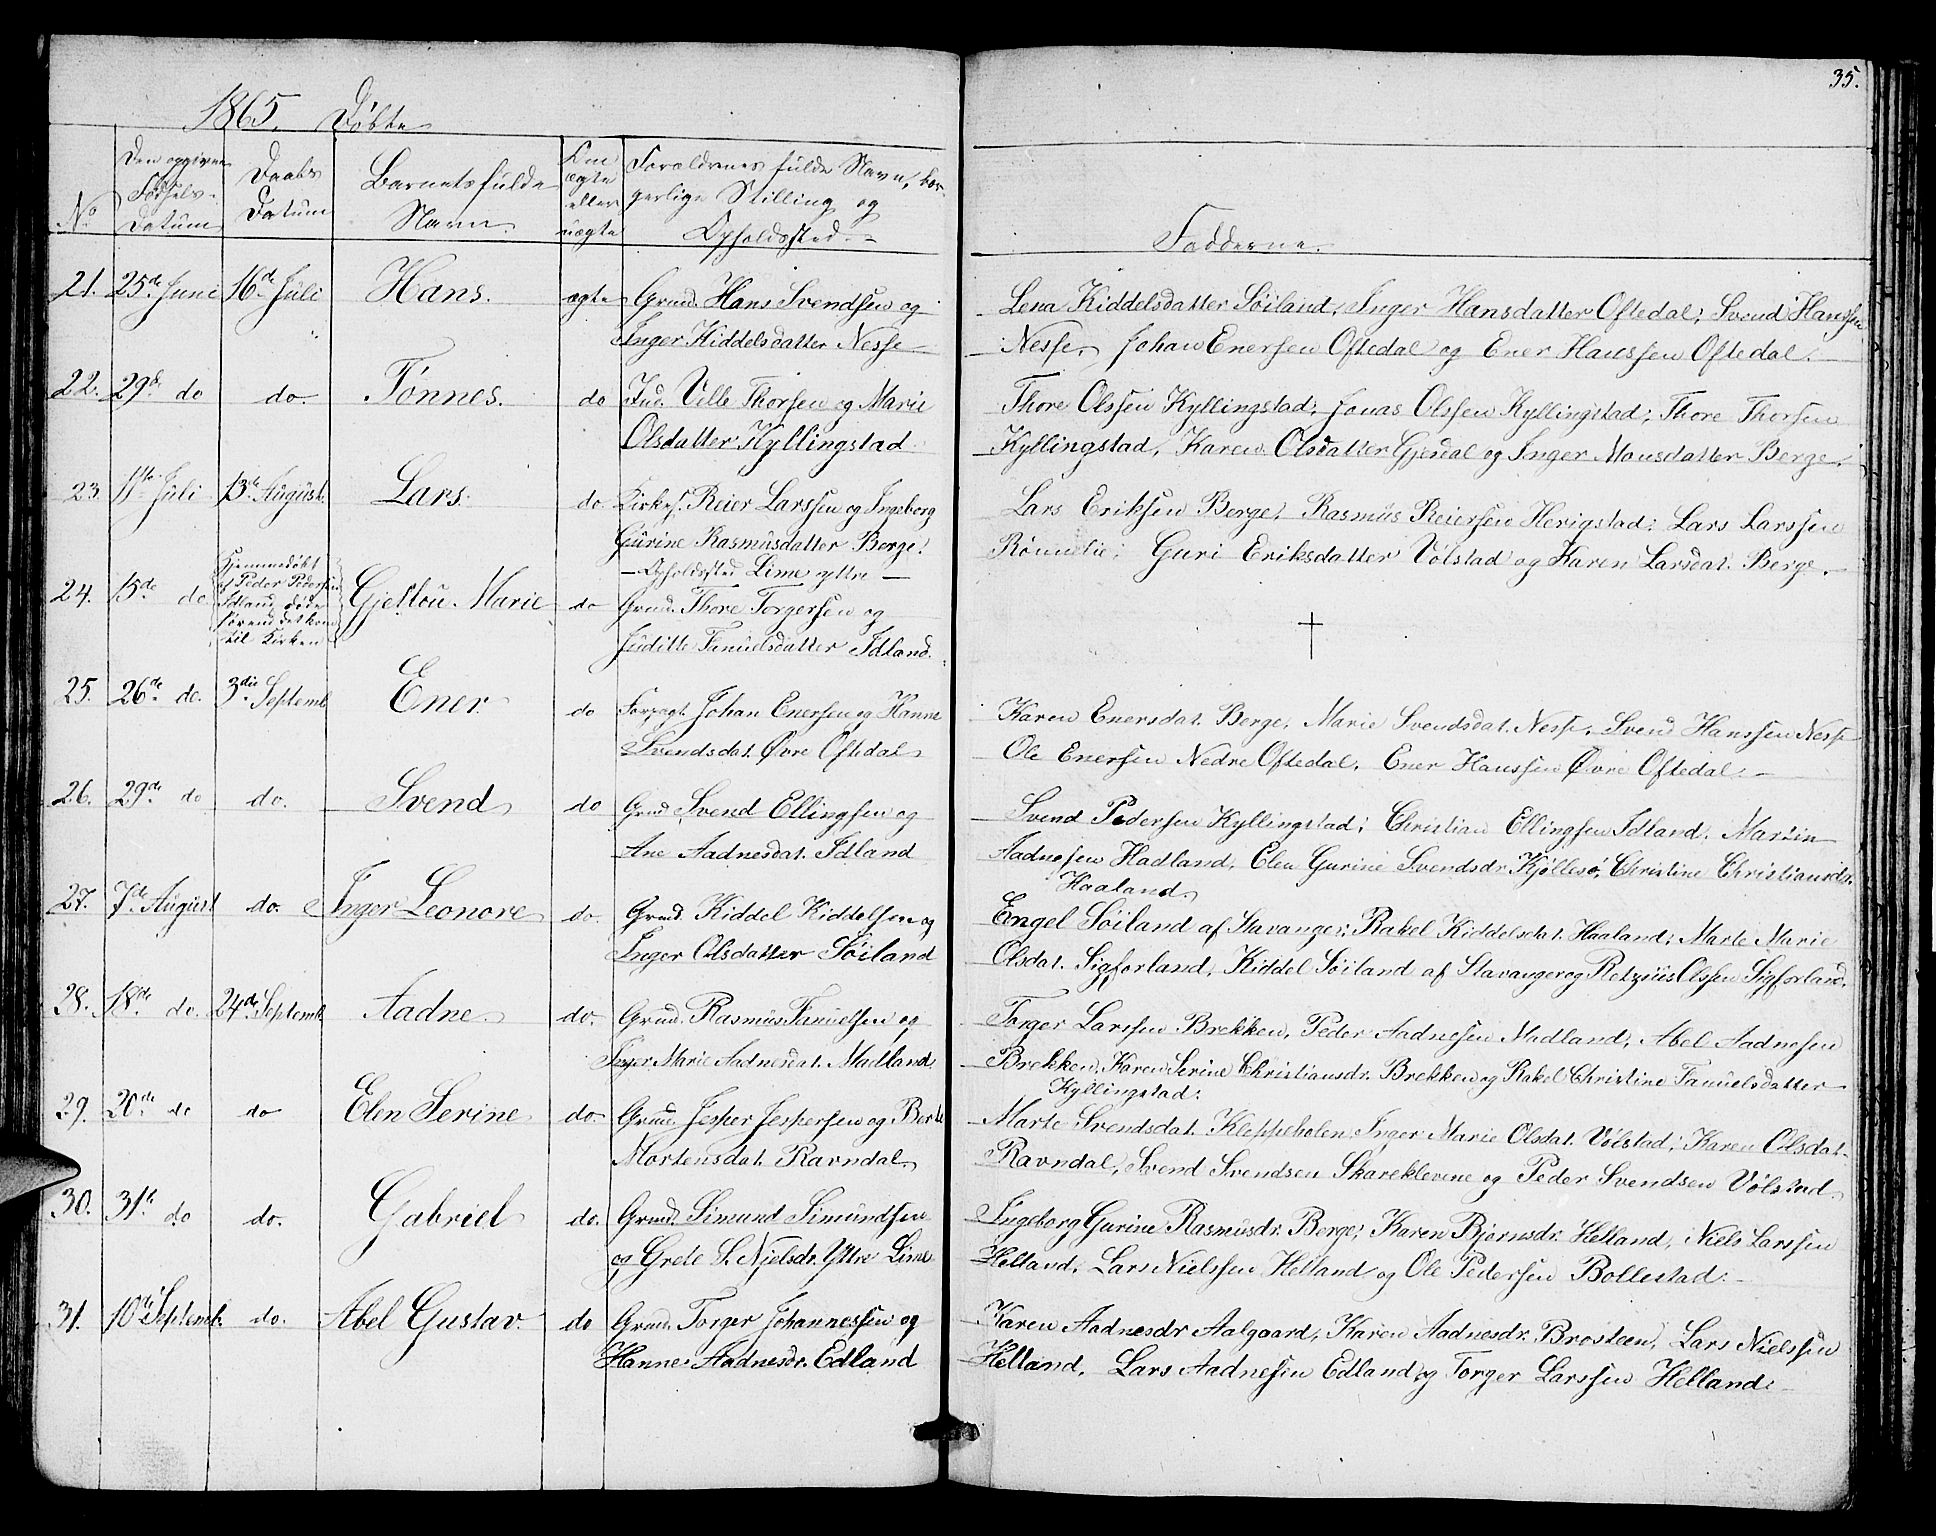 35.
1865. Døbte
No
Den opgivne Fødsels-Datum
Daabs Datum
Barnets fulde Navn.
Om ægte eller uægte
Forældrenes fulde Navn, bor-
gerlige Stilling og
Opholdssted.
Fadderne.
21. 25de Juni 16de Juli Hans. ægte Grmd. Hans Svendsen og
Inger Kiddelsdatter Nesse
Lena Kiddelsdatter Söiland, Inger Hansdatter Oftedal; Svend Hanssen
Nesse, Johan Enersen Oftedal og Ener Hanssen Oftedal.
22. 29de do do. Tönnes. do Ind. Ville Thorsen og Marie
Olsdatter Kyllingstad
Thore Olssen Kyllingstad; Jonas Olssen Kyllingstad; Thore Thorsen
Kyllingstad, Karen Olsdatter Gjesdal og Inger Monsdatter Berge.
23 11te Juli 13de August. Lars. do. Kirkes. Reier Larssen og Ingeborg
Gurine Rasmusdatter Berge.
Opholdssted Lime yttre
Lars Eriksen Berge; Rasmus Reiersen Herigstad; Lars Larssen
Rönnelie; Guri Eriksdatter Völstad og Karen Larsdat. Berge.
24. 15de do. Hjemmedöbt af Peder Pedersen Idland, döde förend det kom til Kirken Gjellou Marie do Grmd. Thore Torgersen og
Juditte Tanuelsdatter Idland.
†
25. 26de do. 3die Septemb. Ener do Forpagt. Johan Enersen og Hanne
Svendsdat. Øvre Oftedal
Karen Enersdat. Berge, Marie Svendsdat. Nesse, Svend Hanssen Nesse
Ole Enersen Nedre Oftedal, Ener Hanssen Øvre Oftedal.
26. 29de do do. Svend do Grmd Svend Ellingsen og
Ane Aadnesdat. Idland
Svend Pedersen Kyllingstad; Christian Ellingsen Idland. Martin
Aadnesen Hadland, Elen Gurine Svendsdr. Kjöllesö, Christine Christiansdr.
Haaland.
27. 7de August do. Inger Leonore do. Grmd. Kiddel Kiddelsen og
Inger Olsdatter Söiland
Engel Söiland af Stavanger; Rakel Kiddelsdat. Haaland; Marte Marie
Olsdat. Sigforland, Kiddel Söiland af Stavanger og Retzius Olssen Sigforland.
28. 18de do. 24de Septemb. Aadne. do. Grmd. Rasmus Tanuelsen og
Inger Marie Aadnesdat. Madland
Torger Larssen Brekken, Peder Aadnesen Madland, Abel Aadnesen
Brekken, Karen Serine Christiansdr. Brekken og Rakel Christine Tanuelsdatter
Kyllingstad.
29. 20de do do Elen Serine do. Grmd. Jesper Jespersen og Berte
Mortensdat. Ravndal
Marte Svendsdat. Kleppeholen, Inger Marie Olsdat. Völstad; Karen Olsdat.
Ravndal, Svend Svendsen Skareklevene og Peder Svendsen Völstad.
30. 31te do do. Gabriel do. Grmd. Simund Simundsen
og Grete S. Njelsdr. Yttre Lime
Ingeborg Gurine Rasmusdr. Berge; Karen Bjørnsdr. Helland, Niels Larssen
Helland, Lars Nielssen Helland og Ole Pedersen Bollestad.
31. 10de Septemb. do. Abel Gustav. do Grmd. Torger Johannessen og
Hanne Aadnesdr. Edland
Karen Aadnesdr Aalgaard, Karen Aadnesdr. Brosteen, Lars Nielssen
Helland, Lars Aadnesen Edland og Torger Larssen Helland.